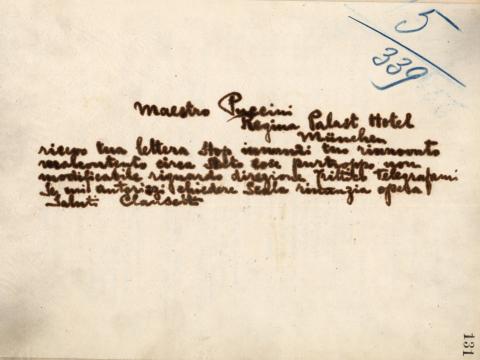 5
339
Maestro Puccini
Regina Palast Hotel
München
ricevo tua lettera stop innanzi tuo rinnovato
malcontento circa stato cose purtroppo non
modificabile riguardo direzione Telegrafami
se mi autorizzi chiedere Scala rinunzia opera
Saluti Clausetti
131